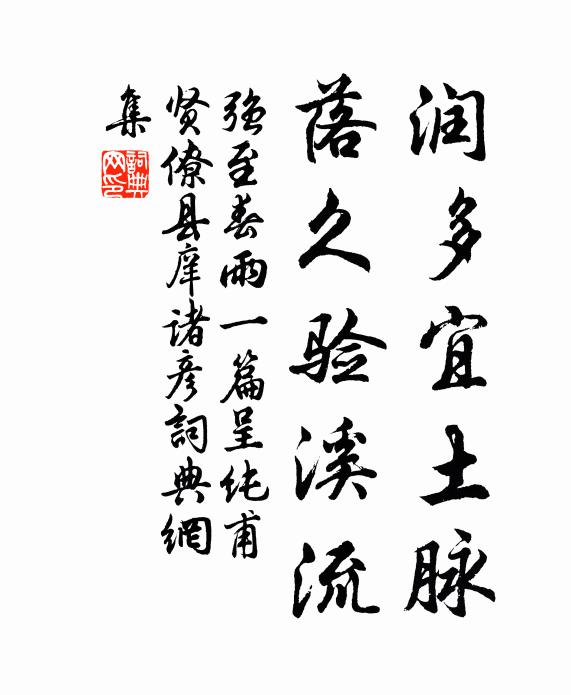 润多宜土脉
落久验溪流
强至春雨一篇呈纯甫
贤僚县庠诸彦詞典網
集
詞典網印